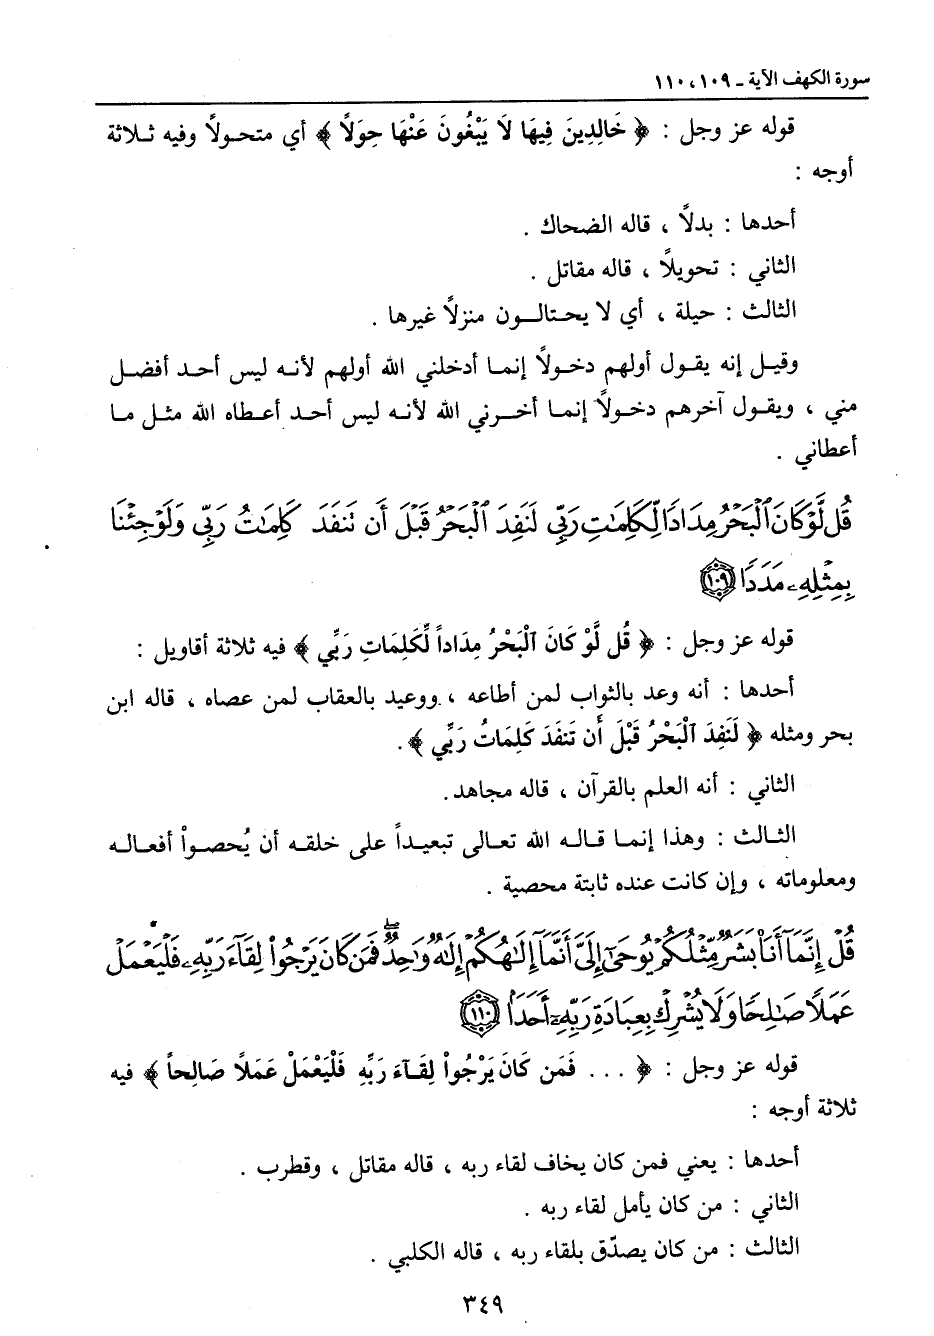 سورة الكهف الآية ـ ١٠٩، ١١٠
قوله عز وجل : ﴿ خَالِدِينَ فِيهَا لَا يَبْغُونَ عَنْهَا حِوَلًا ﴾ أي متحولاً وفيه ثلاثة
أوجه :
أحدها : بدلاً ، قاله الضحاك .
الثاني : تحويلاً ، قاله مقاتل .
الثالث : حيلة ، أي لا يحتالون منزلاً غيرها .
وقيل إنه يقول أولهم دخولاً إنما أدخلني الله أولهم لأنه ليس أحد أفضل
مني ، ويقول آخرهم دخولاً إنما أخرني الله لأنه ليس أحد أعطاه الله مثل ما
أعطاني .
قُل لَّوْ كَانَ ٱلْبَحْرُ مِدَادًا لِّكَلِمَـٰتِ رَبِّى لَنَفِدَ ٱلْبَحْرُ قَبْلَ أَن تَنفَدَ كَلِمَـٰتُ رَبِّى وَلَوْ جِئْنَا
بِمِثْلِهِۦ مَدَدًا ١٠٩
قوله عز وجل : ﴿ قُل لَّوْ كَانَ ٱلْبَحْرُ مِدَاداً لِّكَلِمَاتِ رَبِّي ﴾ فيه ثلاثة أقاويل :
أحدها : أنه وعد بالثواب لمن أطاعه ، ووعيد بالعقاب لمن عصاه ، قاله ابن
بحر ومثله ﴿ لَنَفِدَ ٱلْبَحْرُ قَبْلَ أَن تَنفَدَ كَلِمَاتُ رَبِّي ﴾ .
الثاني : أنه العلم بالقرآن ، قاله مجاهد .
الثالث : وهذا إنما قاله الله تعالى تبعيداً على خلقه أن يُحصواْ أفعاله
ومعلوماته ، وإن كانت عنده ثابتة محصية .
قُلْ إِنَّمَآ أَنَا۠ بَشَرٌ مِّثْلُكُمْ يُوحَىٰٓ إِلَىَّ أَنَّمَآ إِلَـٰهُكُمْ إِلَـٰهٌ وَٰحِدٌ ۖ فَمَن كَانَ يَرْجُوا۟ لِقَآءَ رَبِّهِۦ فَلْيَعْمَلْ
عَمَلًا صَـٰلِحًا وَلَا يُشْرِكْ بِعِبَادَةِ رَبِّهِۦٓ أَحَدًۢا ١١٠
قوله عز وجل : ﴿ . . . فَمَن كَانَ يَرْجُواْ لِقَآءَ رَبِّهِ فَلْيَعْمَلْ عَمَلًا صَالِحاً ﴾ فيه
ثلاثة أوجه :
أحدها : يعني فمن كان يخاف لقاء ربه ، قاله مقاتل ، وقطرب .
الثاني : من كان يأمل لقاء ربه .
الثالث : من كان يصدّق بلقاء ربه ، قاله الكلبي .
٣٤٩